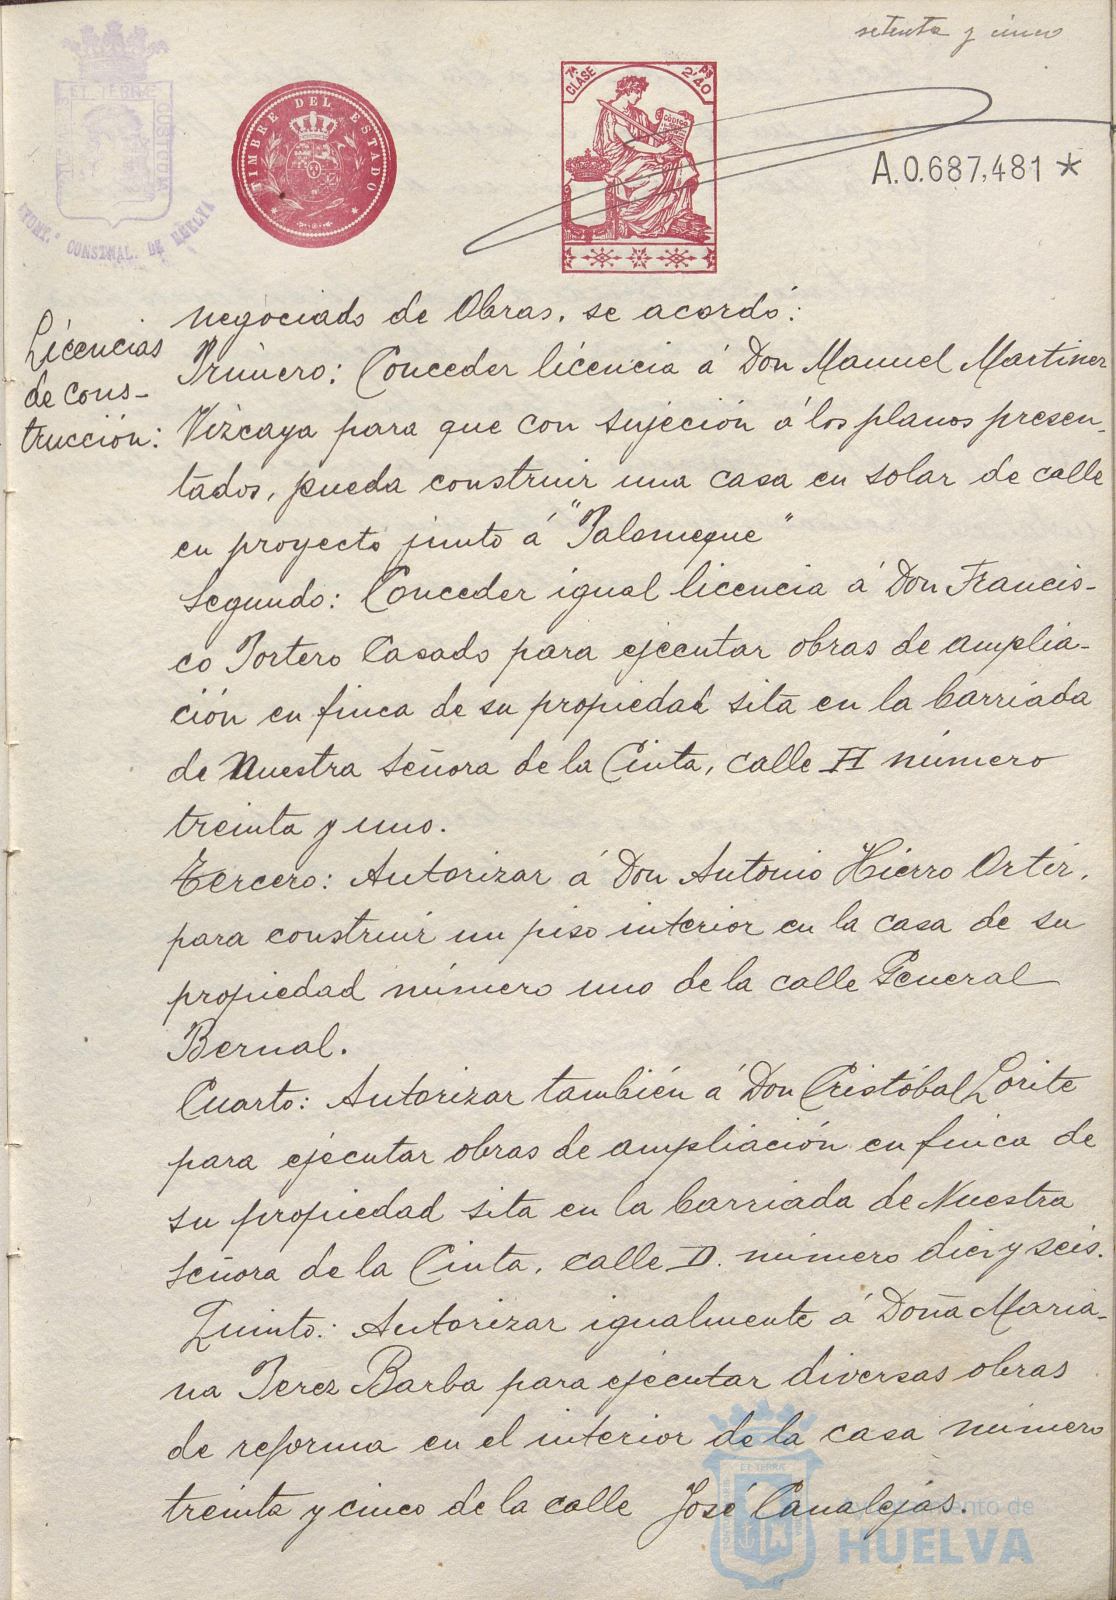 setenta y cinco
TIMBRE DEL ESTADO
7ª CLASE
2'40 PS
CÓDIGO
A.0.687,481 *
ET TERRÆ CUSTODIA
CONSTNAL. DE HUELVA
Licencias
de cons-
trucción:
negociado de Obras, se acordó:
Primero: Conceder licencia á Don Manuel Martinez
Vizcaya para que con sujeción á los planos presen-
tados, pueda construir una casa en solar de calle
en proyecto junto á "Palomeque"
Segundo: Conceder igual licencia á Don Francis-
co Portero Casado para ejecutar obras de amplia-
ción en finca de su propiedad sita en la barriada
de Nuestra Señora de la Cinta, calle H número
treinta y uno.
Tercero: Autorizar á Don Antonio Hierro Ortiz,
para construir un piso interior en la casa de su
propiedad número uno de la calle General
Bernal.
Cuarto: Autorizar también á Don Cristóbal Lorite
para ejecutar obras de ampliación en finca de
su propiedad sita en la barriada de Nuestra
Señora de la Cinta, calle D. número diez y seis.
Quinto: Autorizar igualmente á Doña Maria-
na Perez Barba para ejecutar diversas obras
de reforma en el interior de la casa número
treinta y cinco de la calle José Canalejas.
Ayuntamiento de
HUELVA